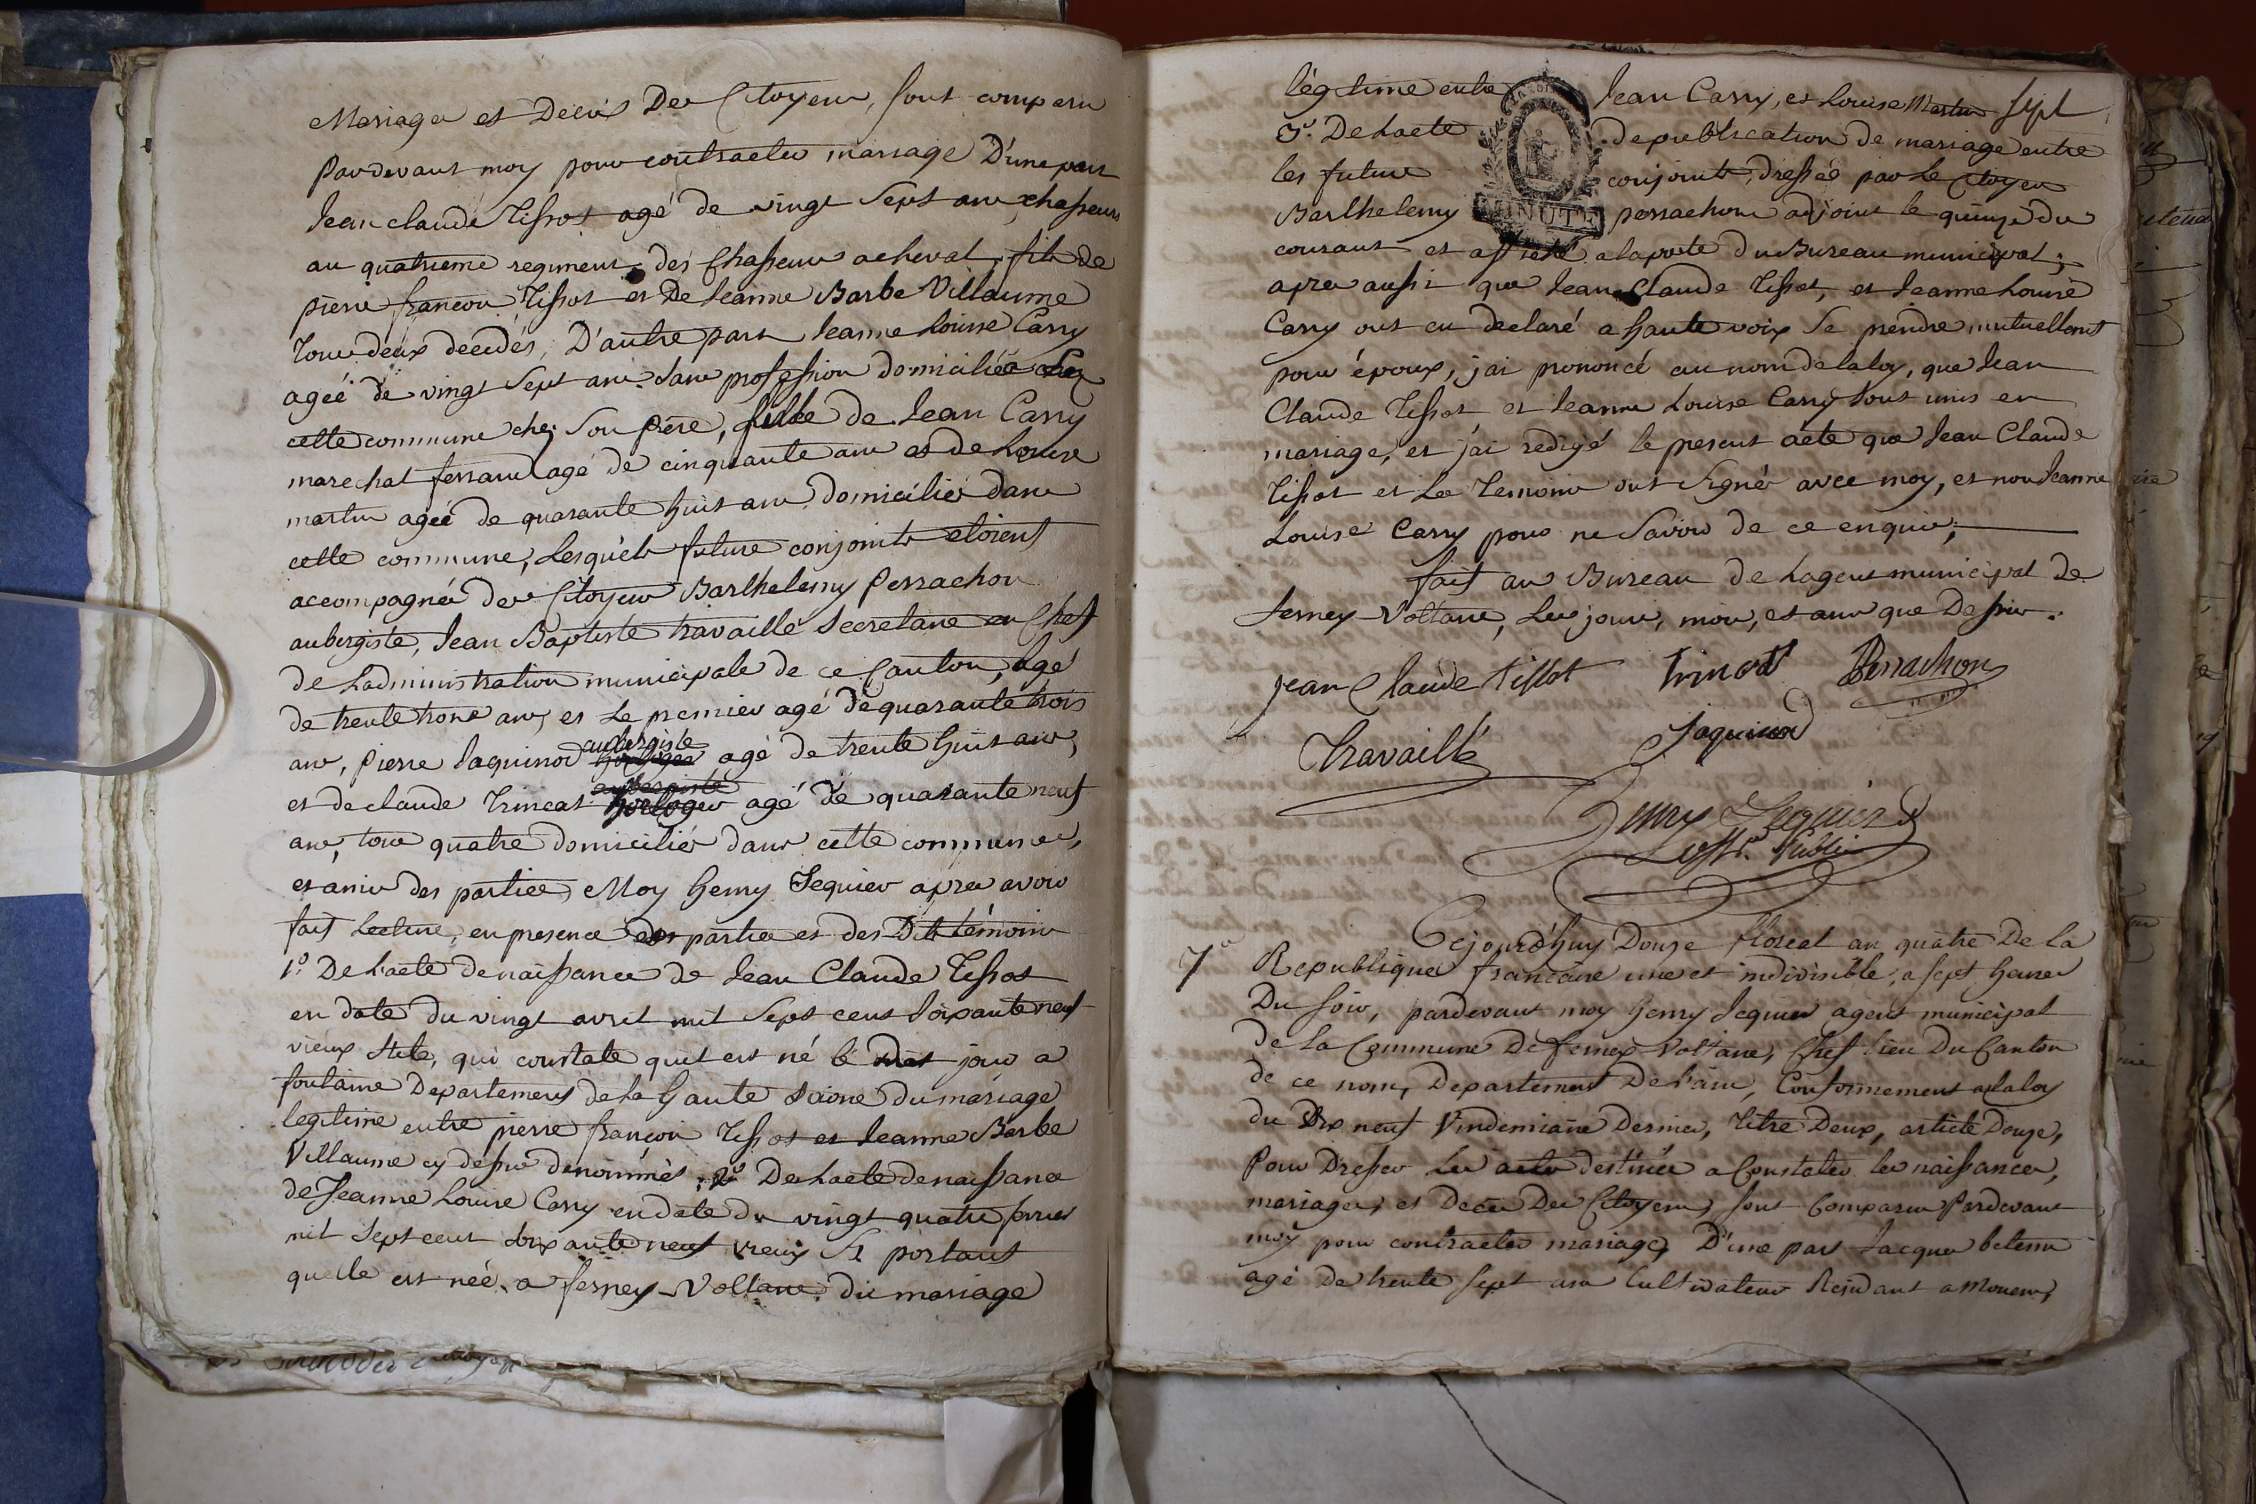 Mariages et Décès Des Citoyens, sont comparu
Pardevant moy pour contracter mariage D'une part
Jean claude Tissot agé de vingt Sept ans, chasseur
au quatrieme regiment des Chasseurs acheval, fils de
pierre françois Tissot et De Jeanne Barbe Villaume
tous deux décédés, D'autre part Jeanne Louise Carry
agéé de vingt Sept ans Sans profession domiciliée
cette commune chez Son Père, fille de Jean Carry
marechal ferrand agé de cinquante ans et de Louise
martin agéé de quarante huit ans domiciliés dans
cette commune, Lesquels futurs conjoints etoient
accompagnés des Citoyens Barthelemy Perrachon
aubergiste, Jean Baptiste travaillé Secretaire en Chef
de Ladministration municipale de ce Canton, agé
de trente trois ans, et Le premier agé de quarante trois
ans, pierre Jaquinod aubergiste agé de trente huit ans,
et de claude Trincat horloger agé de quarante neuf
ans, tous quatre domiciliés dans cette commune,
et amis des parties, Moy henry Jequier apres avoir
fait Lecture, en presence des parties et des Dits témoins
1.° De L'acte de naissance de Jean Claude Tissot
en date du vingt avril mil Sept cens Soixante neuf
vieux stile, qui constate quil est né le dit jour a
fontaine Departement de la haute Saone du mariage
legitime entre pierre françois Tissot et Jeanne Barbe
Villaume cy dessus denommés, 2° De Lacte de naissance
de Jeanne Louise Carry en date du vingt quatre fevrier
mil Sept cens Soixante neuf vieux St portant
quelle est née a ferney-Voltaire du mariage
légitime entre Jean Carry, et Louise Martin sept
3°. De Lacte de publication de mariage entre
les futurs conjoints, dressée par Le Citoyen
Barthelemy perrachon adjoint le quinze du
courant et affiché a la porte du Bureau municipal;
apres aussi que Jean Claude Tissot, et Jeanne Louise
Carry ont eu declaré a haute voix Se prendre mutuellement
pour époux, j'ai prononcé au nom de la loy, que Jean
Claude Tissot et Jeanne Louise Carry Sont unis en
mariage, et j'ai redigé le present acte que Jean Claude
Tissot et Les Temoins ont Signé avec moy, et non Jeanne
Louise Carry pour ne Savoir de ce enquis;
fait au Bureau de Lagent municipal de
ferney-Voltaire, Les jour, mois, et ans que Dessus.
jean Claude tissot trincat Perrachon
Travaillé Jaquinod
henry Jequier
offr. Public
MINUTE
7e Cejourd'huy Douze floreal an quatre De la
Republique française une et indivisible, a sept heures
Du Soir, pardevant moy henry Jequier agent municipal
de La Commune De ferney-Voltaire, Chef lieu Du Canton
de ce nom, Departement De L'ain, Conformement a la loy
du Dix neuf Vindemiaire Dernier, Titre Deux, article Douze,
Pour Dresser Les actes destinés a Constater les naissances,
mariages, et Décès Des Citoyens, sont Comparus Pardevant
moy pour contracter mariage, D'une part Jacques betems
agé De trente sept ans Cultivateur Residant a Mouens,